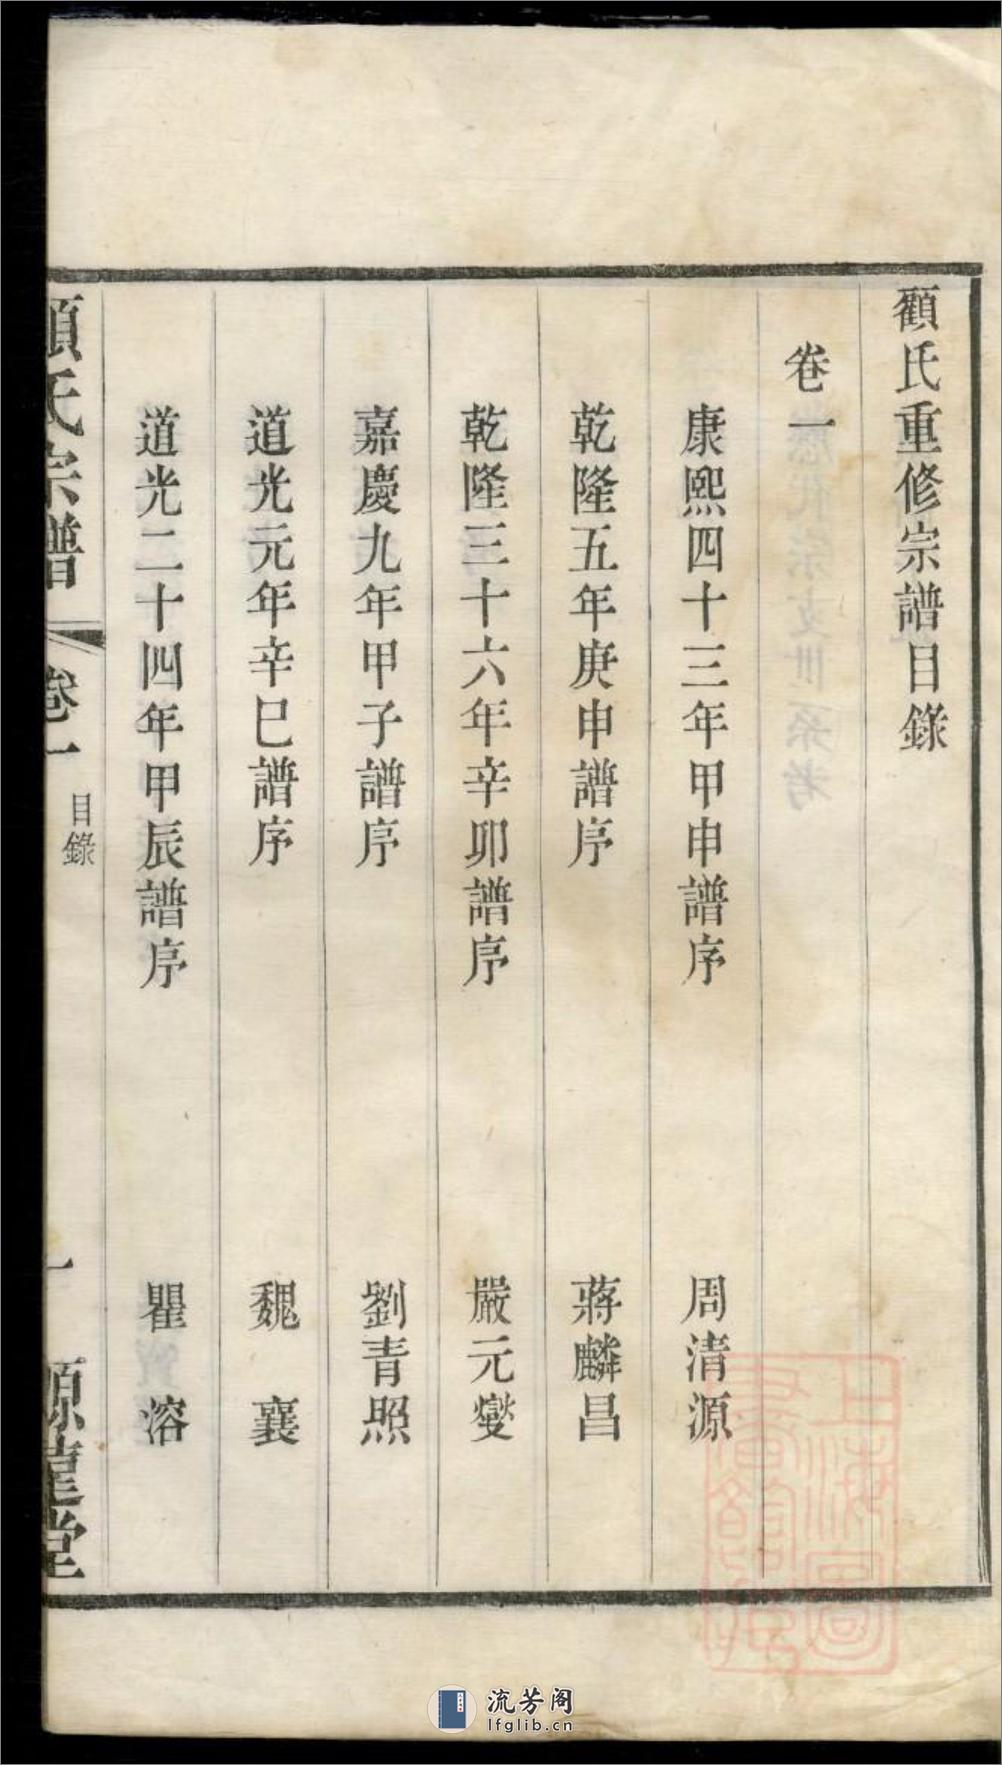 顧氏重修宗譜目錄
卷一
康熙四十三年甲申譜序　周清源
乾隆五年庚申譜序　蔣麟昌
乾隆三十六年辛卯譜序　嚴元燮
嘉慶九年甲子譜序　劉青照
道光元年辛巳譜序　魏襄
道光二十四年甲辰譜序　瞿溶
顧氏宗譜　卷一　目錄　一　源龍堂
上海圖書館藏
流芳阁
lfglib.cn